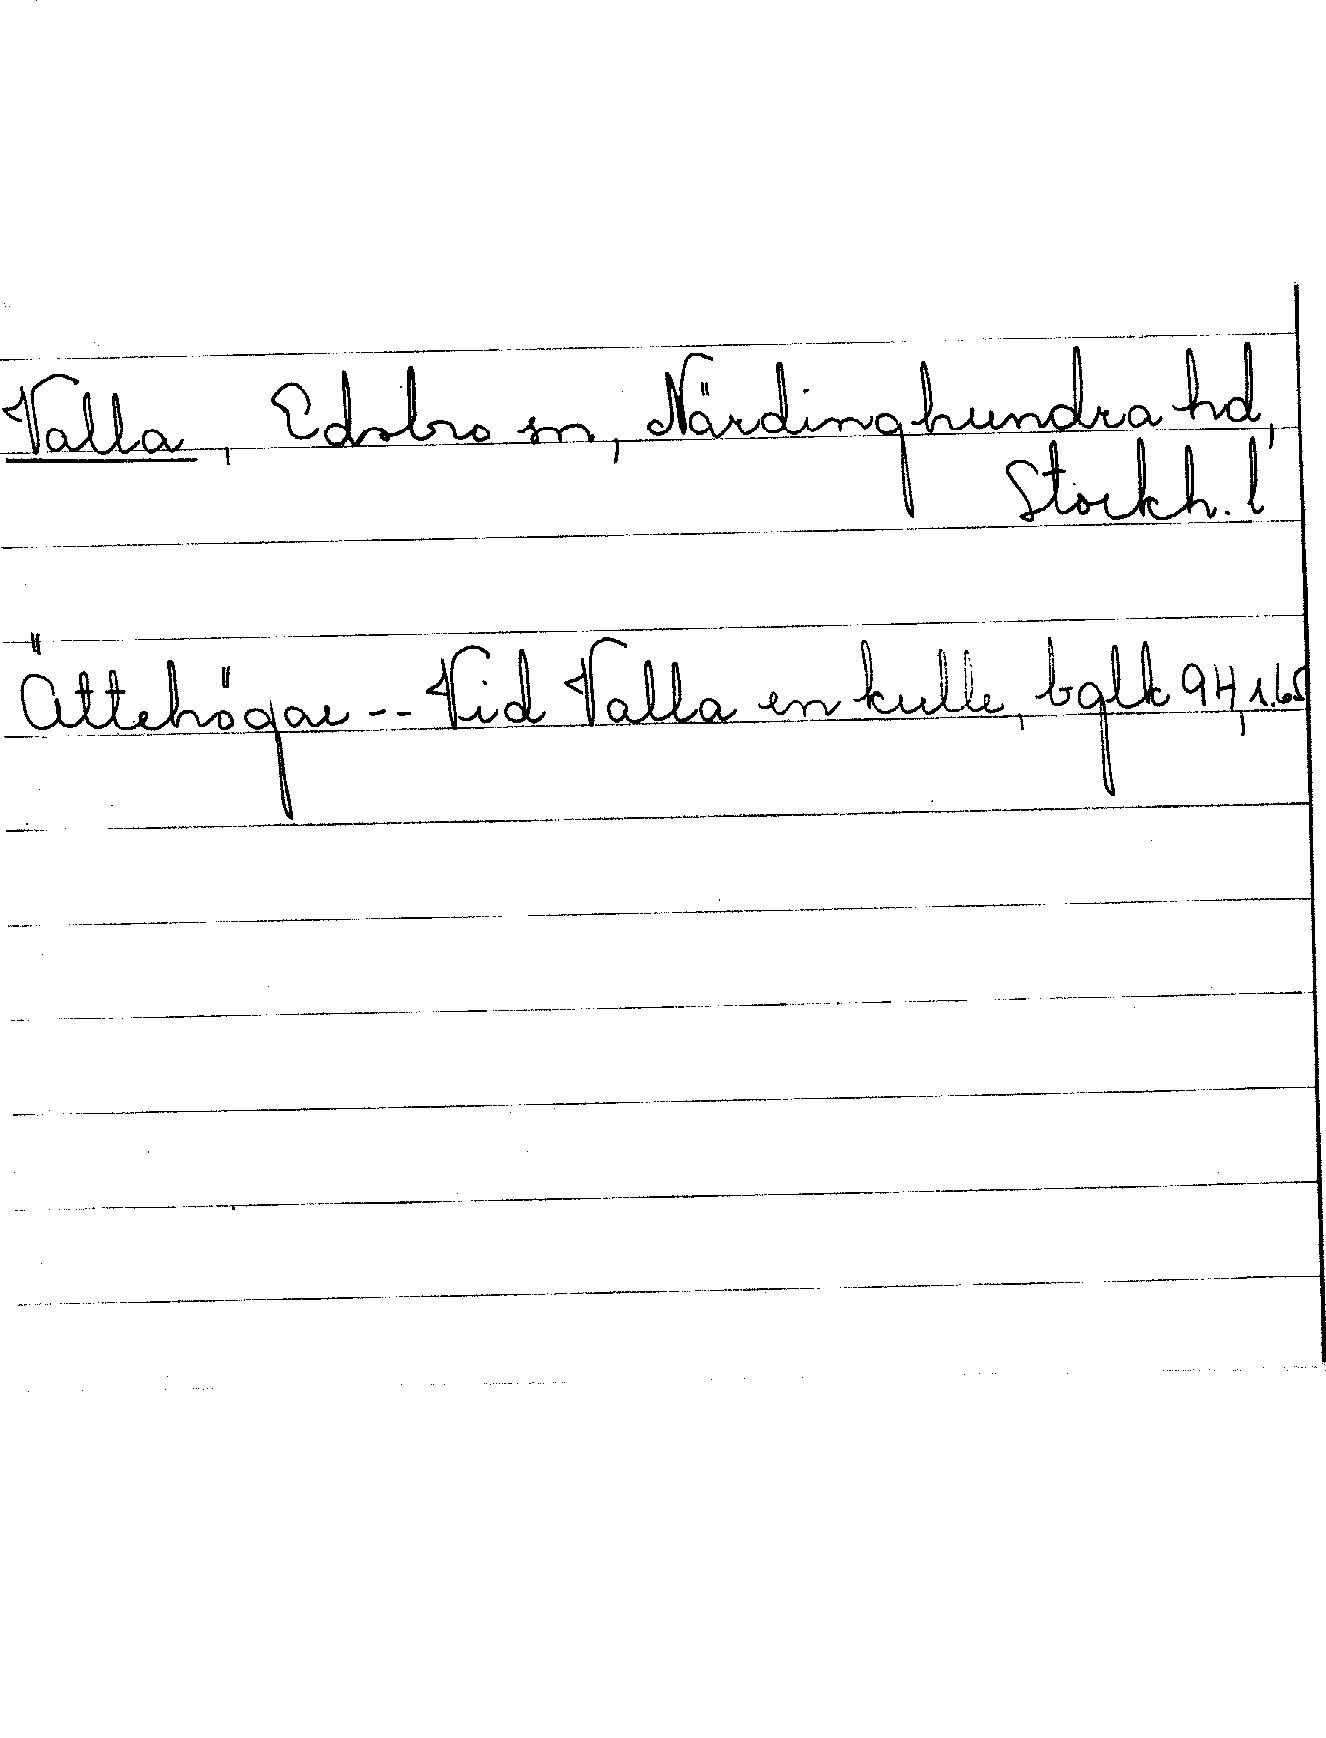 Valla, Edsbro sn, Närdinghundra hd,
Stockh. l
Ättehögar -- Vid Valla en kulle, bglk 94, 1.65